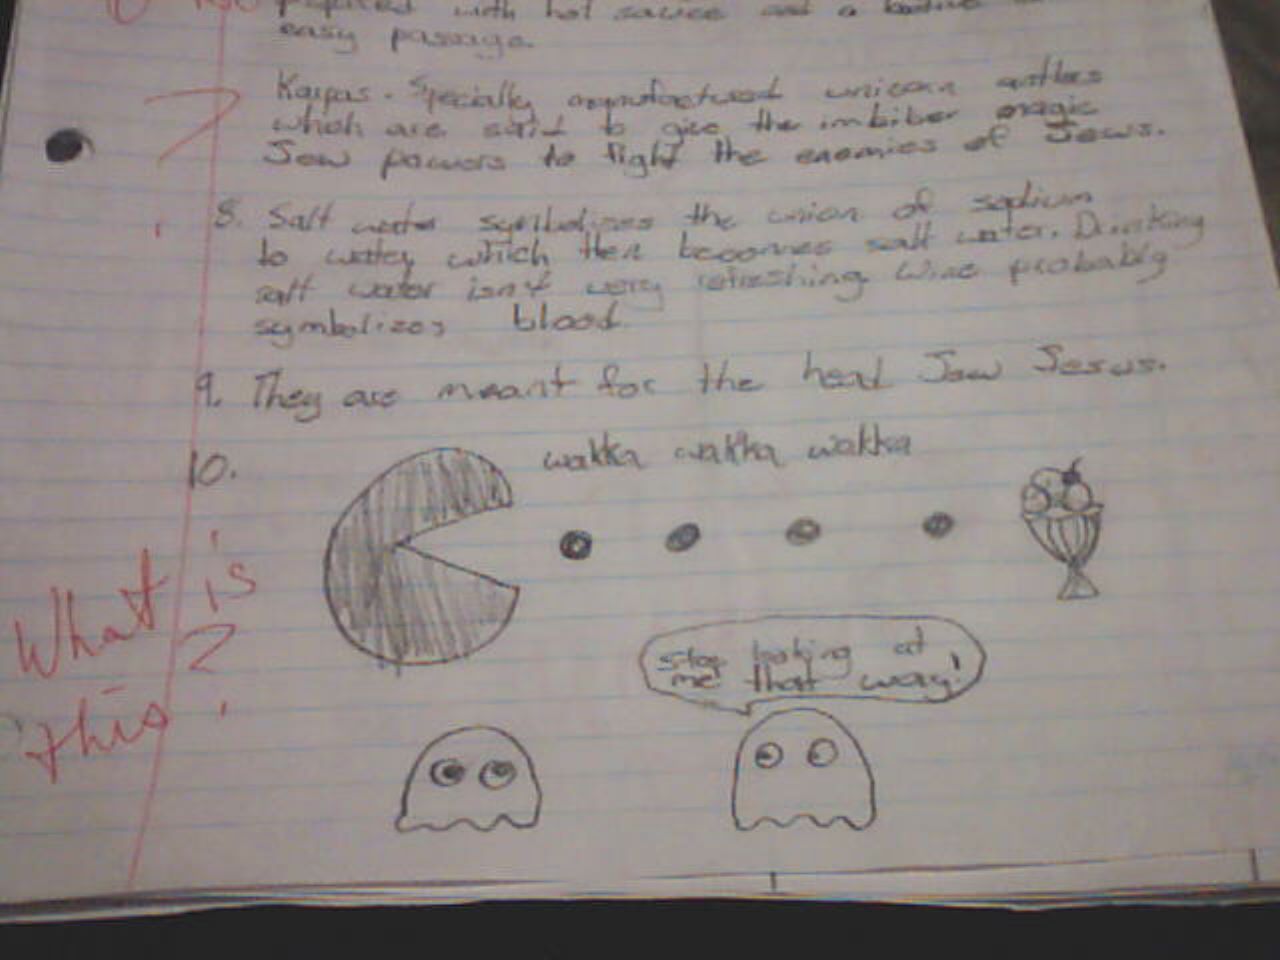 with hot sauce and a
easy passage.
?
Karpas - Specially manufactured unicorn antlers
which are said to give the imbiber magic
Jew powers to fight the enemies of Jesus.
8. Salt water symbolizes the union of sodium
to water, which then becomes salt water. Drinking
salt water isn't very refreshing. Wine probably
symbolizes blood
9. They are meant for the head Jew Jesus.
10. wakka wakka wakka
What is
this?
Stop looking at
me that way!